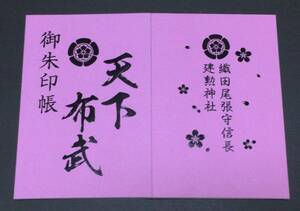 織田尾張守信長
建勲神社
御朱印帳
天下
布武